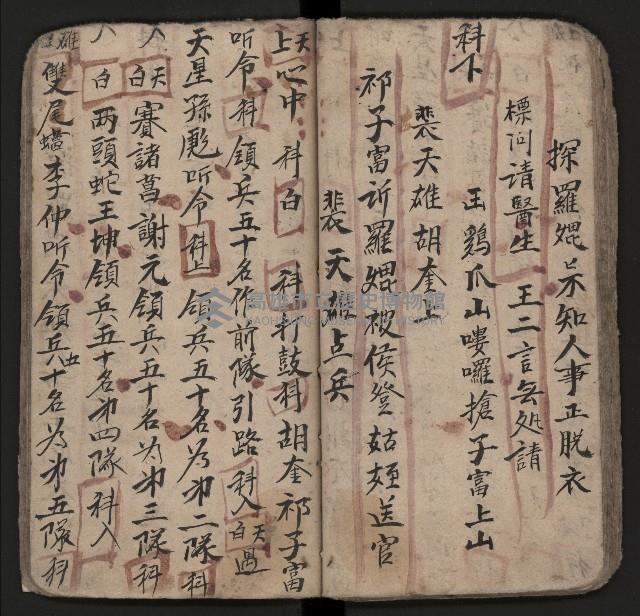 探羅焜不知人事正脱衣
標问請醫生 王二言無処請
王鷄爪山嘍囉搶子富上山
科下
裴天雄胡奎上
祁子富訴羅焜被侯登姑姪送官
裴天雄点兵
天上心中 科白 科打鼓科胡奎祁子富
听令科領兵五十名作前隊引路科入天白過
天星孫彪听令科上領兵五十名為弟二隊科
入 天白 賽諸葛謝元領兵五十名為弟三隊科
入 白 两頭蛇王坤領兵五十名弟四隊科入
雄 雙尾蝎李仲听令領兵五十名為弟五隊科
高雄市立歷史博物館
KAOHSIUNG MUSEUM OF HISTORY